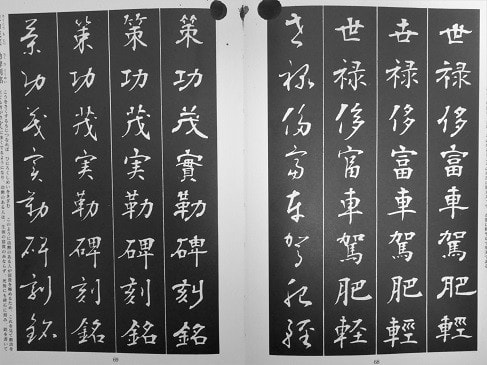 世禄侈富車駕肥輕
世禄侈富車駕肥輕
世禄侈富車駕肥軽
世禄侈富車駕肥軽
68
策功茂實勒碑刻銘
策功茂実勒碑刻銘
策功茂実勒碑刻銘
策功茂実勒碑刻銘
69